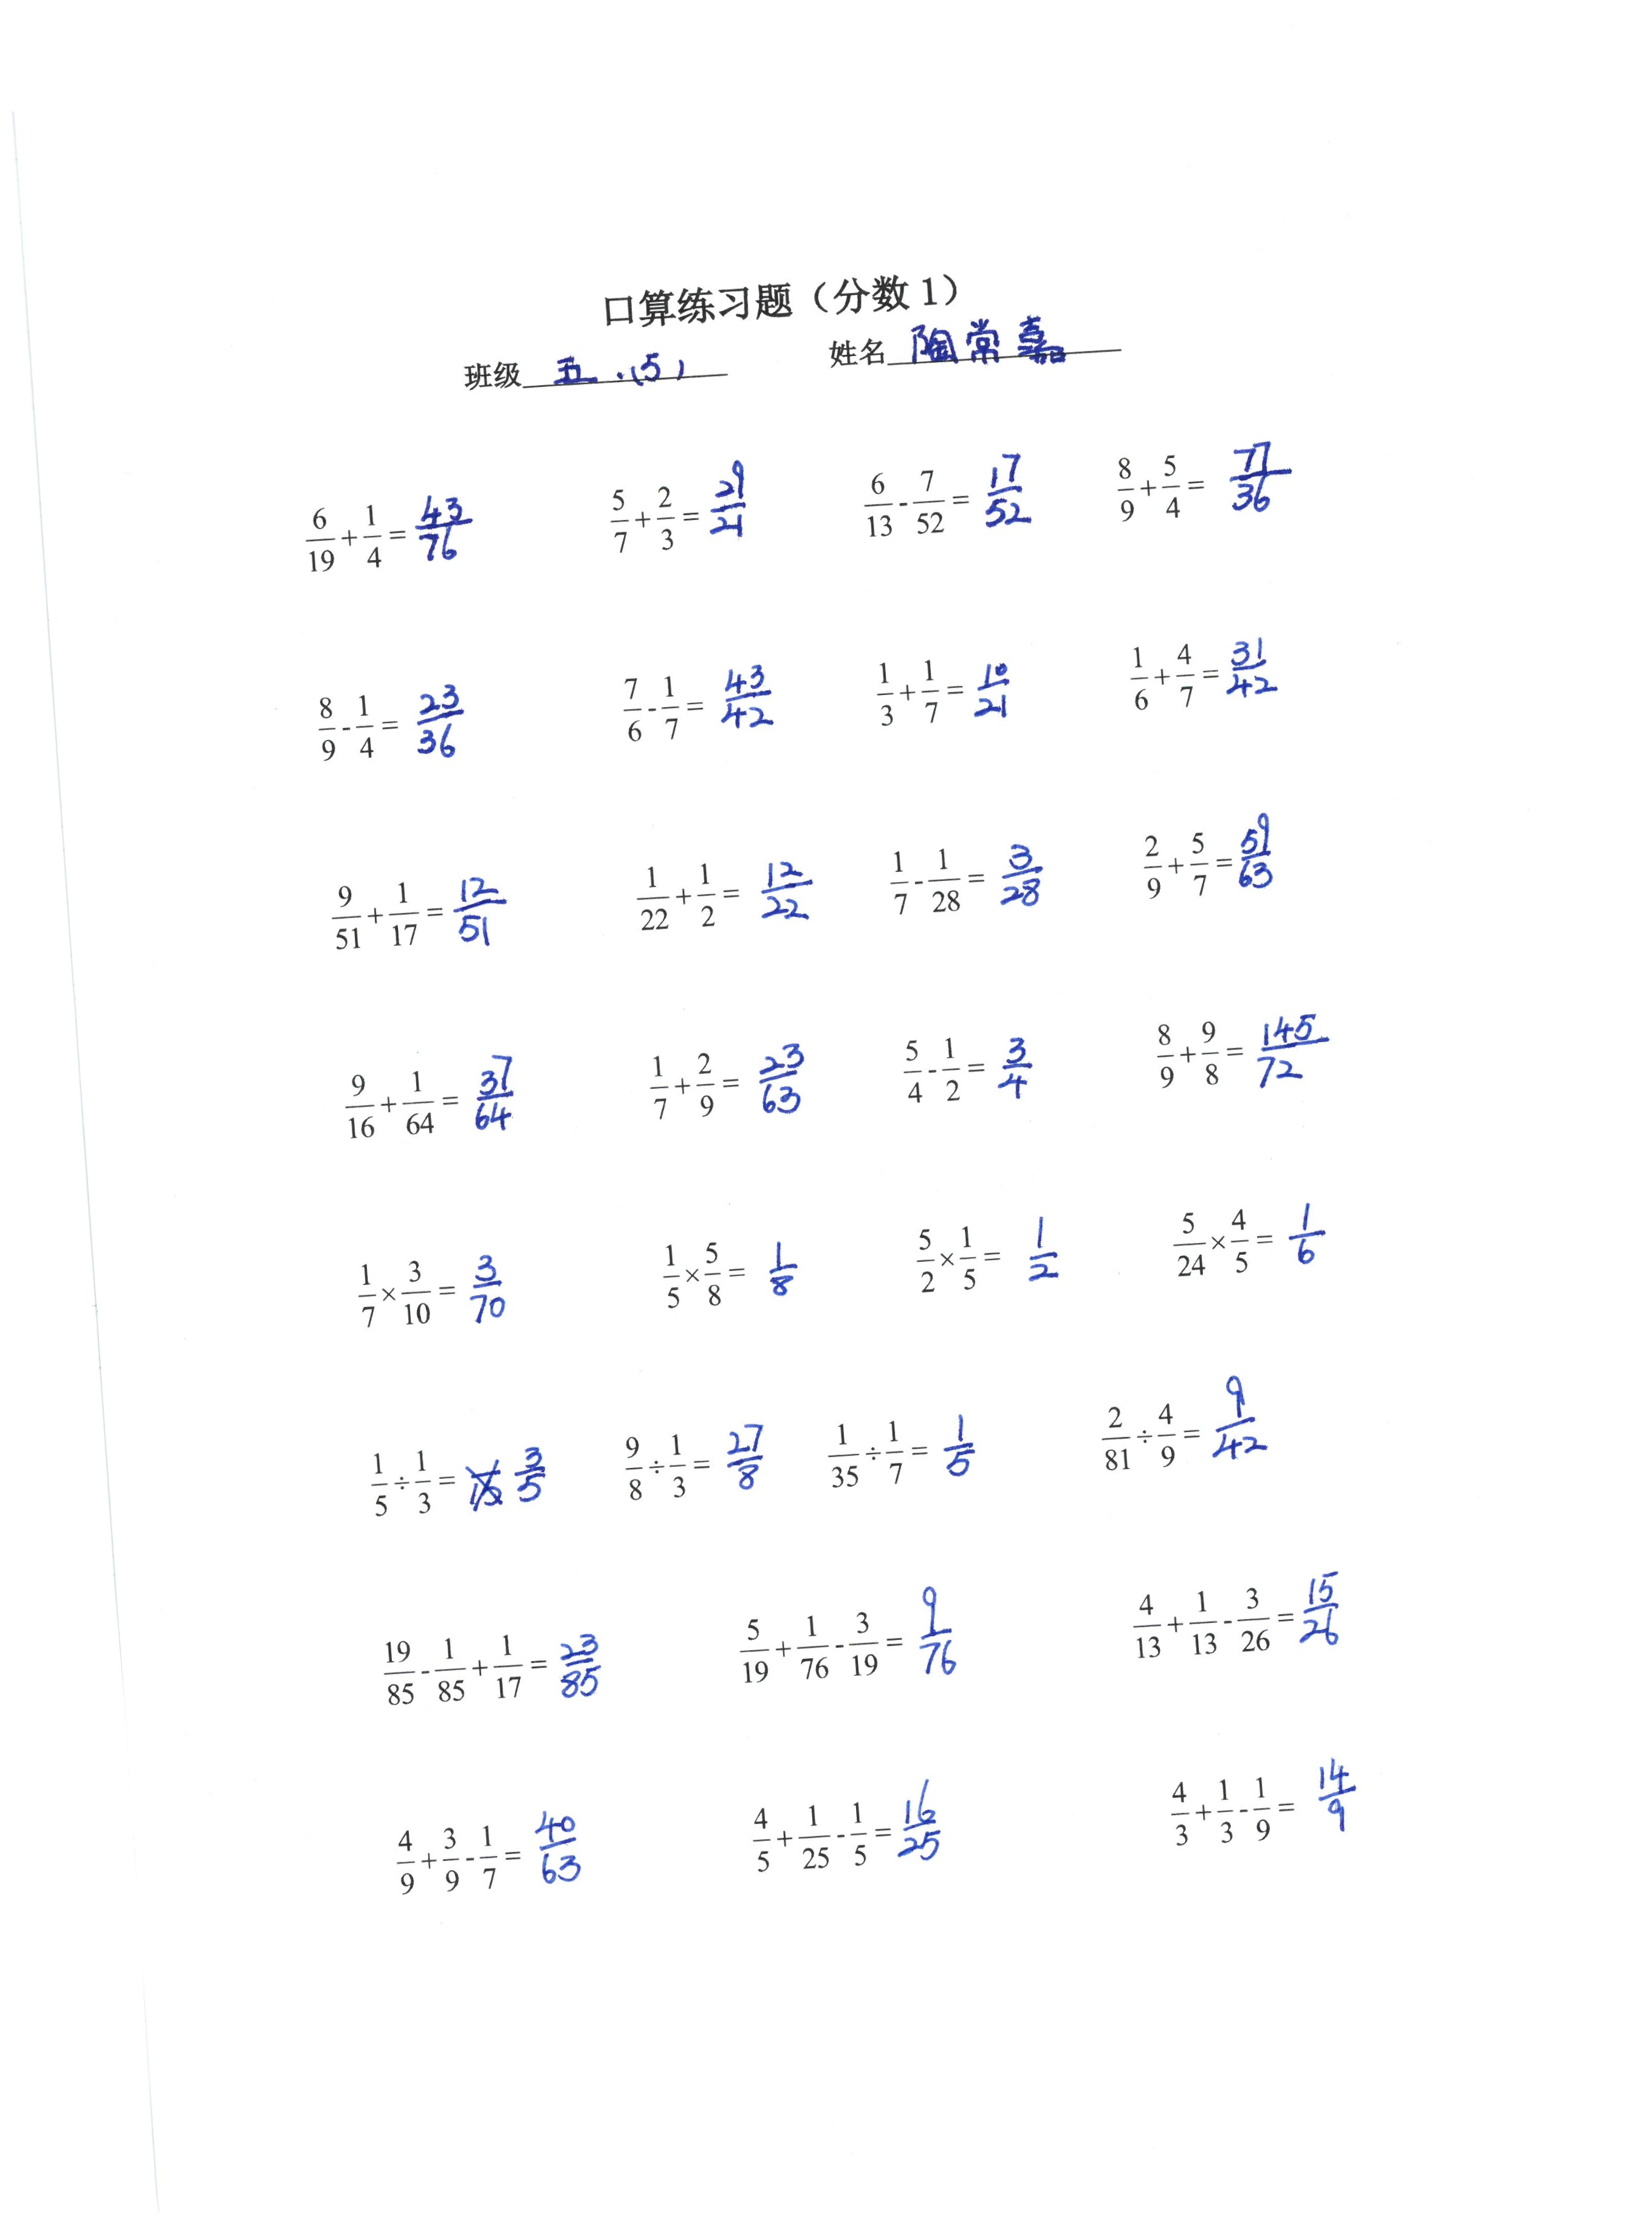 口算练习题（分数 1）
班级 五.(5) 姓名 陶常嘉
6/19 + 1/4 = 43/76 5/7 + 2/3 = 29/21 6/13 - 7/52 = 17/52 8/9 + 5/4 = 77/36
8/9 - 1/4 = 23/36 7/6 - 1/7 = 43/42 1/3 + 1/7 = 10/21 1/6 + 4/7 = 31/42
9/51 + 1/17 = 12/51 1/22 + 1/2 = 12/22 1/7 - 1/28 = 3/28 2/9 + 5/7 = 59/63
9/16 + 1/64 = 37/64 1/7 + 2/9 = 23/63 5/4 - 1/2 = 3/4 8/9 + 9/8 = 145/72
1/7 × 3/10 = 3/70 1/5 × 5/8 = 1/8 5/2 × 1/5 = 1/2 5/24 × 4/5 = 1/6
1/5 ÷ 1/3 = 3/5 9/8 ÷ 1/3 = 27/8 1/35 ÷ 1/7 = 1/5 2/81 ÷ 4/9 = 9/42
19/85 - 1/85 + 1/17 = 23/85 5/19 + 1/76 - 3/19 = 9/76 4/13 + 1/13 - 3/26 = 15/26
4/9 + 3/9 - 1/7 = 40/63 4/5 + 1/25 - 1/5 = 16/25 4/3 + 1/3 - 1/9 = 14/9